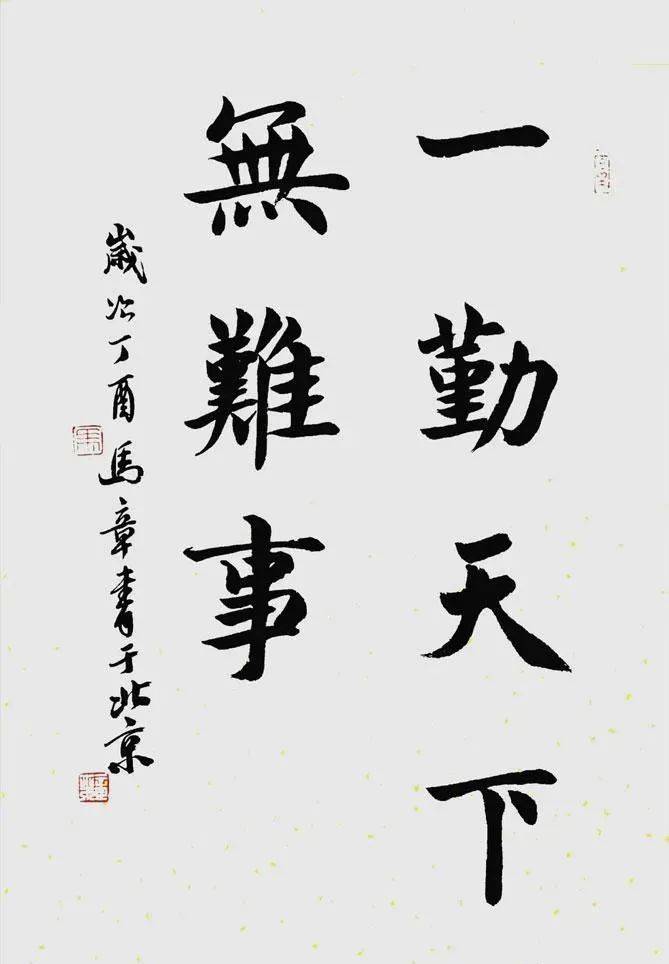 一勤天下
無難事
歲次丁酉馬章青于北京